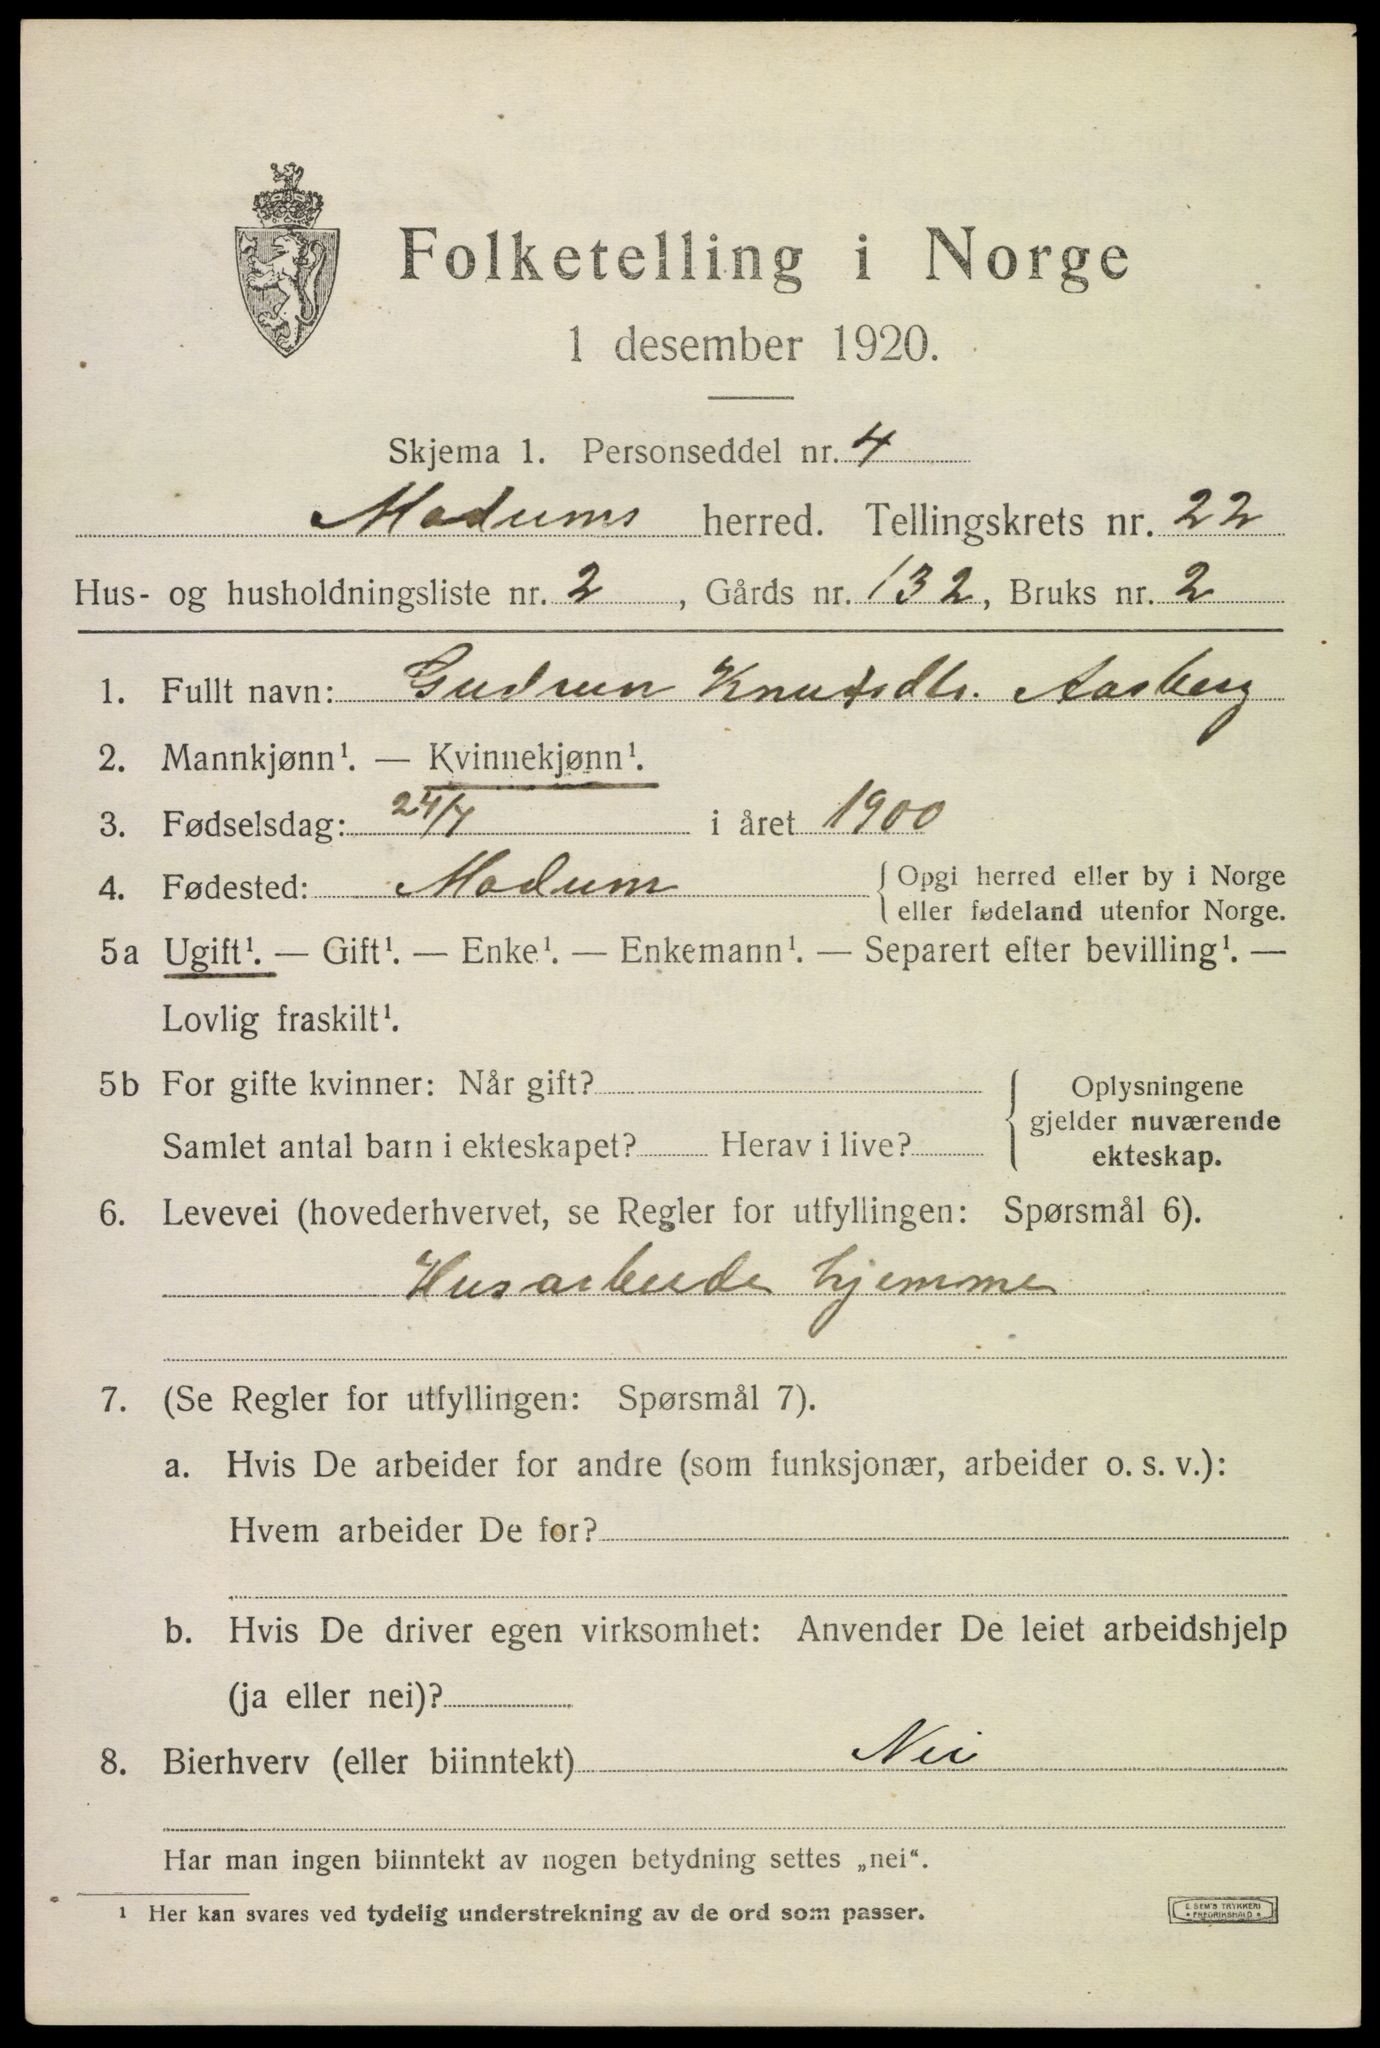 Folketelling i Norge
1 desember 1920.
Skjema 1. Personseddel nr. 4
Modums herred. Tellingskrets nr. 22
Hus- og husholdningsliste nr. 2, Gårds nr. 132, Bruks nr. 2
1. Fullt navn: Gudrun Knutsdtr. Aasberg
2. Mannkjønn¹. — Kvinnekjønn¹.
3. Fødselsdag: 24/4 i året 1900
4. Fødested: Modum { Opgi herred eller by i Norge
eller fødeland utenfor Norge.
5a Ugift¹. — Gift¹. — Enke¹. — Enkemann¹. — Separert efter bevilling¹. —
Lovlig fraskilt¹.
5b For gifte kvinner: Når gift?
Samlet antal barn i ekteskapet? Herav i live?
{ Oplysningene
gjelder nuværende
ekteskap.
6. Levevei (hovederhvervet, se Regler for utfyllingen: Spørsmål 6).
Husarbeide hjemme
7. (Se Regler for utfyllingen: Spørsmål 7).
a. Hvis De arbeider for andre (som funksjonær, arbeider o. s. v.):
Hvem arbeider De for?
b. Hvis De driver egen virksomhet: Anvender De leiet arbeidshjelp
(ja eller nei)?
8. Bierhverv (eller biinntekt) Nei
Har man ingen biinntekt av nogen betydning settes „nei“.
¹ Her kan svares ved tydelig understrekning av de ord som passer.
E. SEM'S TRYKKERI
• FREDRIKSHALD •